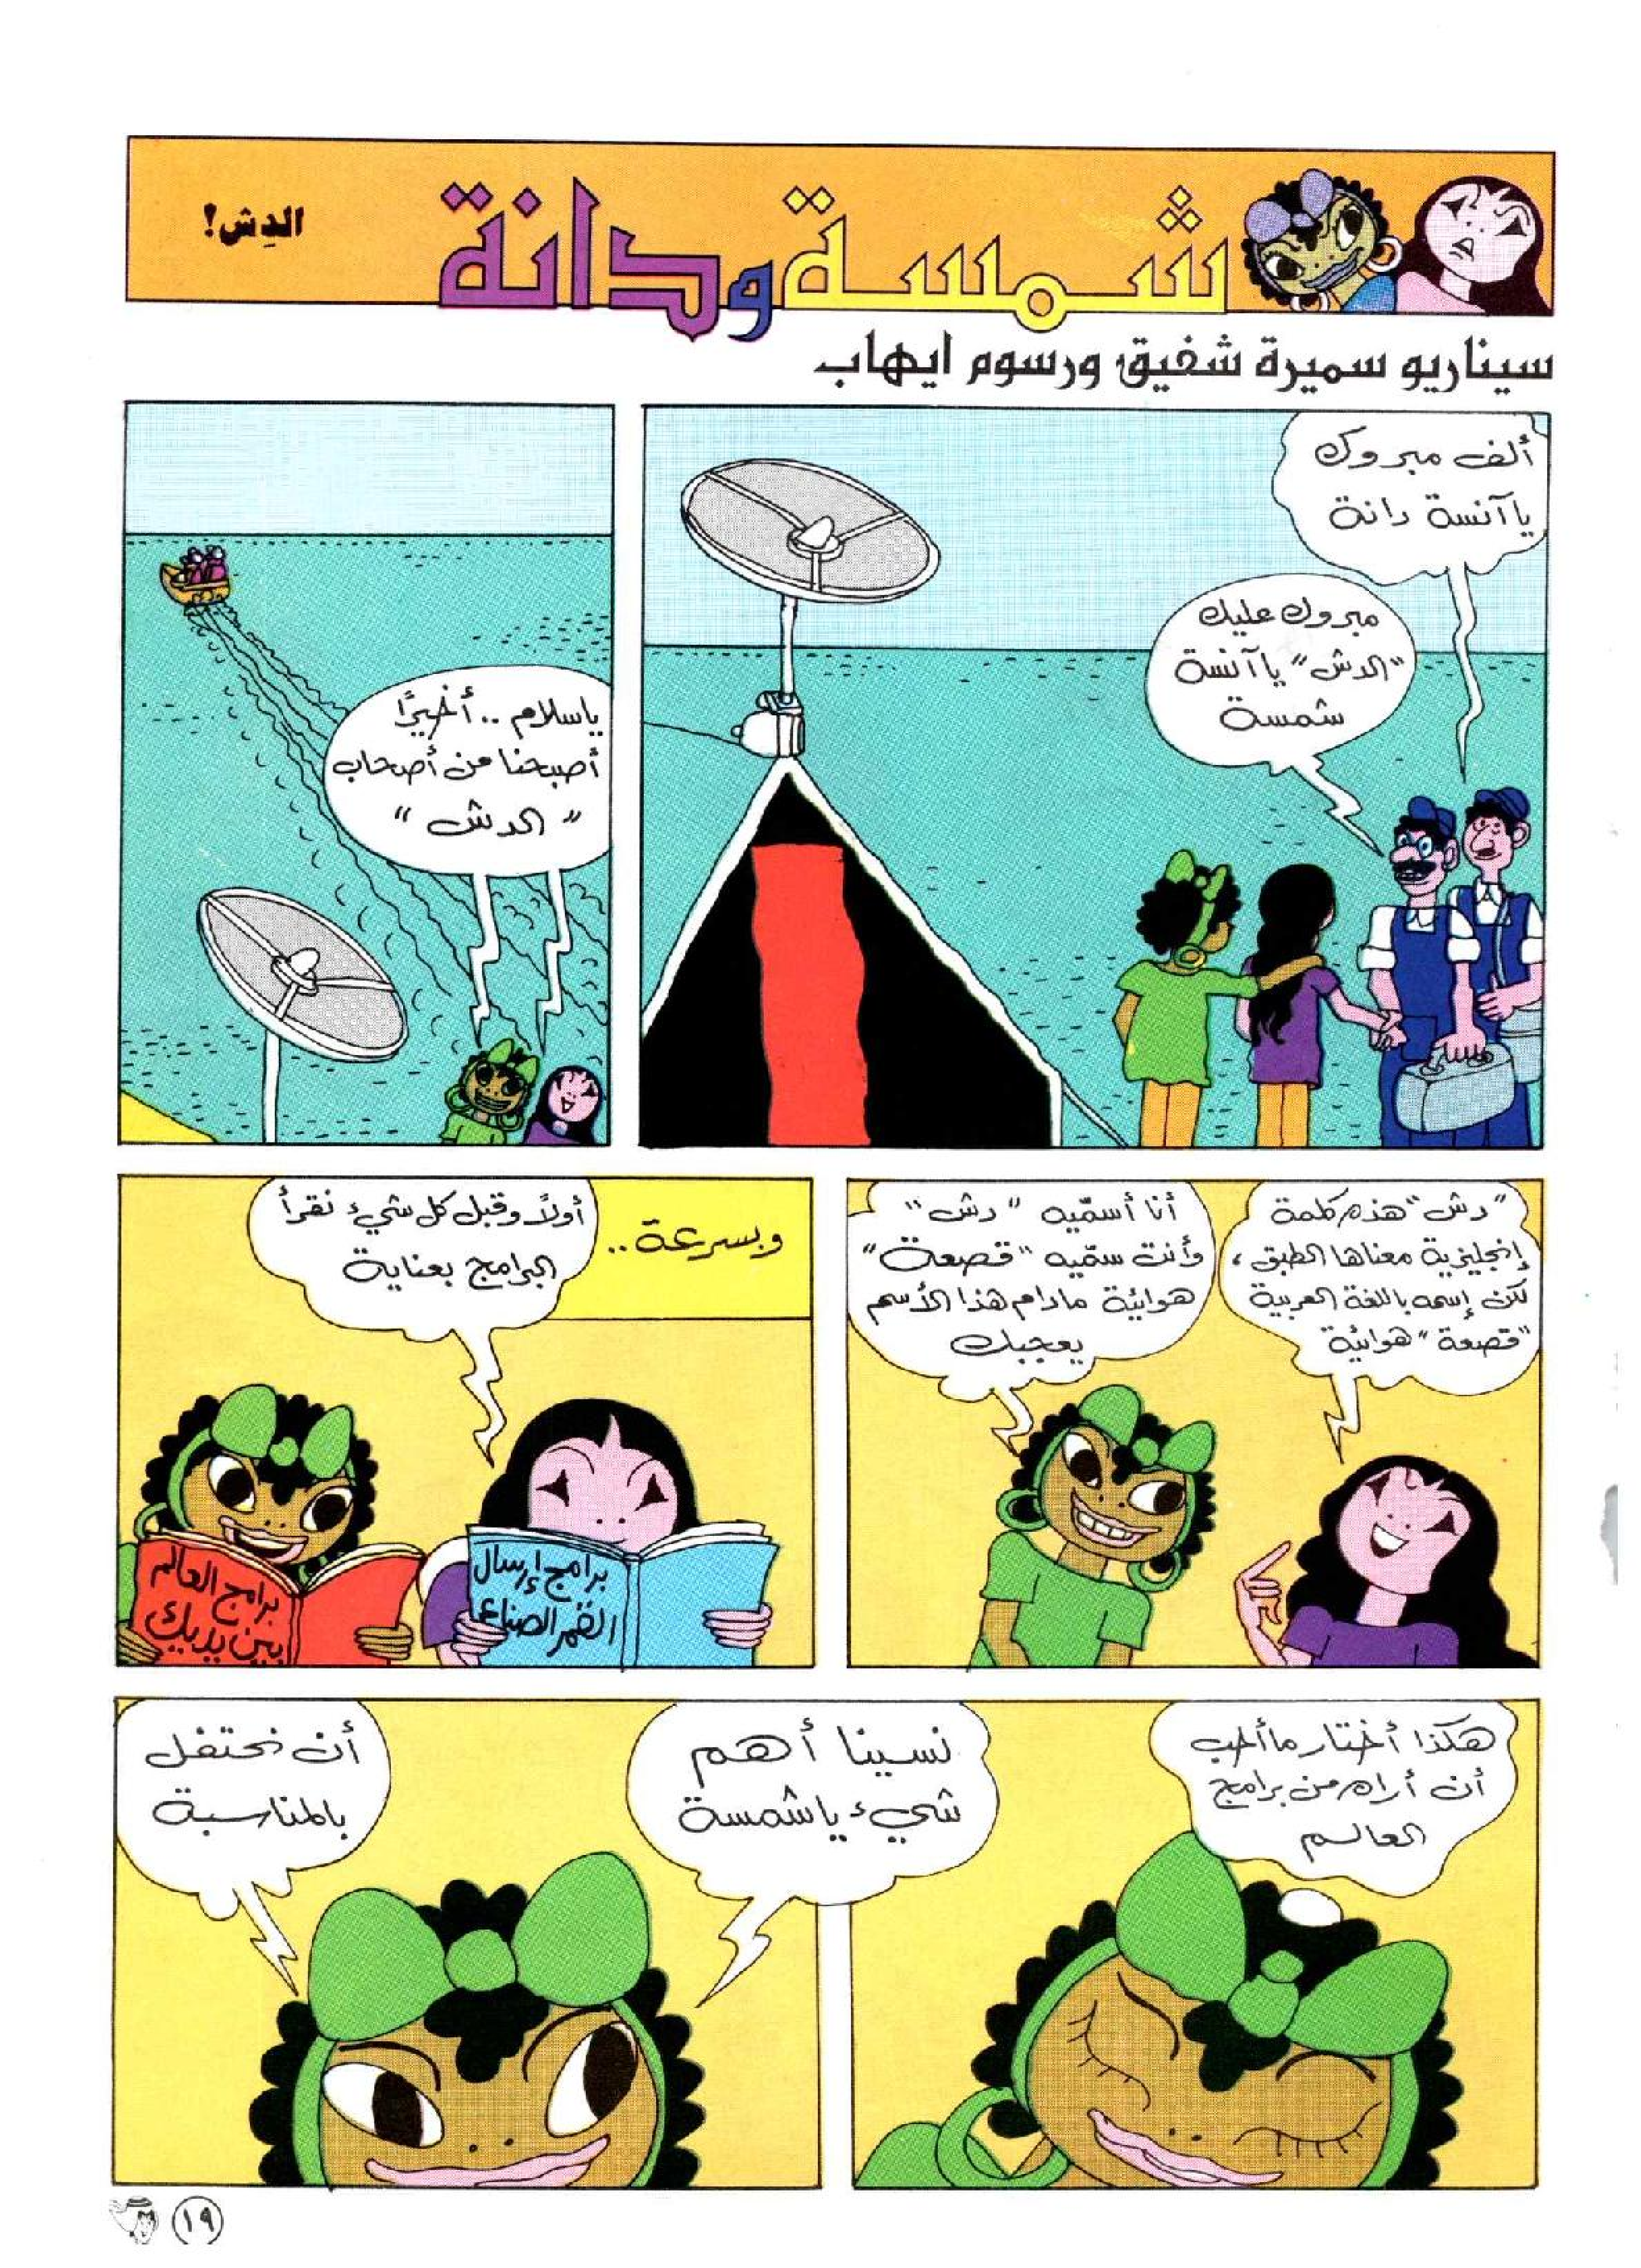 شمسة ودانة
الدِش!
سيناريو سميرة شفيق ورسوم ايهاب
ألف مبروك
يا آنسة دانة
مبروك عليك
"الدش" يا آنسة
شمسة
ياسلام .. أخيرًا
أصبحنا من أصحاب
"الدش"
"دش" هذه كلمة
إنجليزية معناها الطبق ،
لكن إسمه باللغة العربية
"قصعة" هوائية
أنا أسمّيه "دش"
وأنت سمّيه "قصعة"
هوائية مادام هذا الأسم
يعجبك
وبسرعة ..
أولاً وقبل كل شيء نقرأ
البرامج بعناية
برامج إرسال
القمر الصناعي
برامج العالم
بين يديك
هكذا أختار ما أحب
أن أراه من برامج
العالم
نسينا أهم
شيء ياشمسة
أن نحتفل
بالمناسبة
١٩